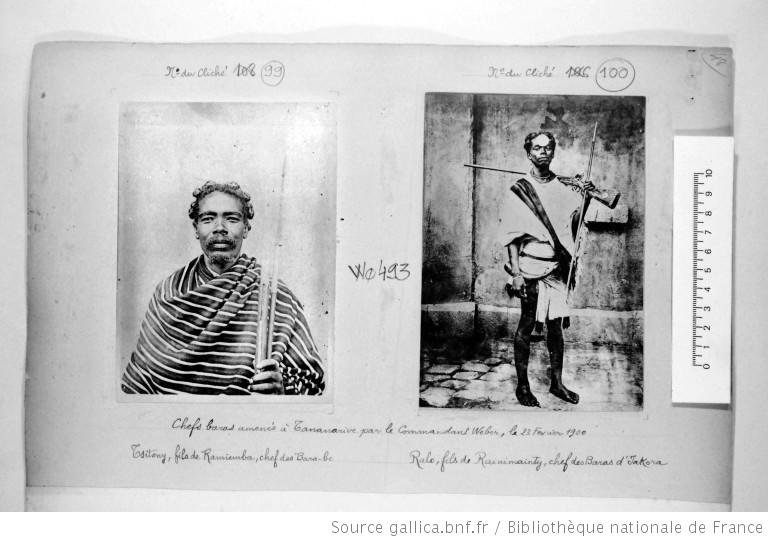 No. du Cliché 108 99
No. du Cliché 186 100
We 493
0 1 2 3 4 5 6 7 8 9 10
Chefs baras amenés à Tananarive par le Commandant Weber, le 23 Fevrier 1900
Tsitony, fils de Ramiemba, chef des Bara-be
Ralo, fils de Rainimainty, chef des Baras d'Iakora
Source gallica.bnf.fr / Bibliothèque nationale de France